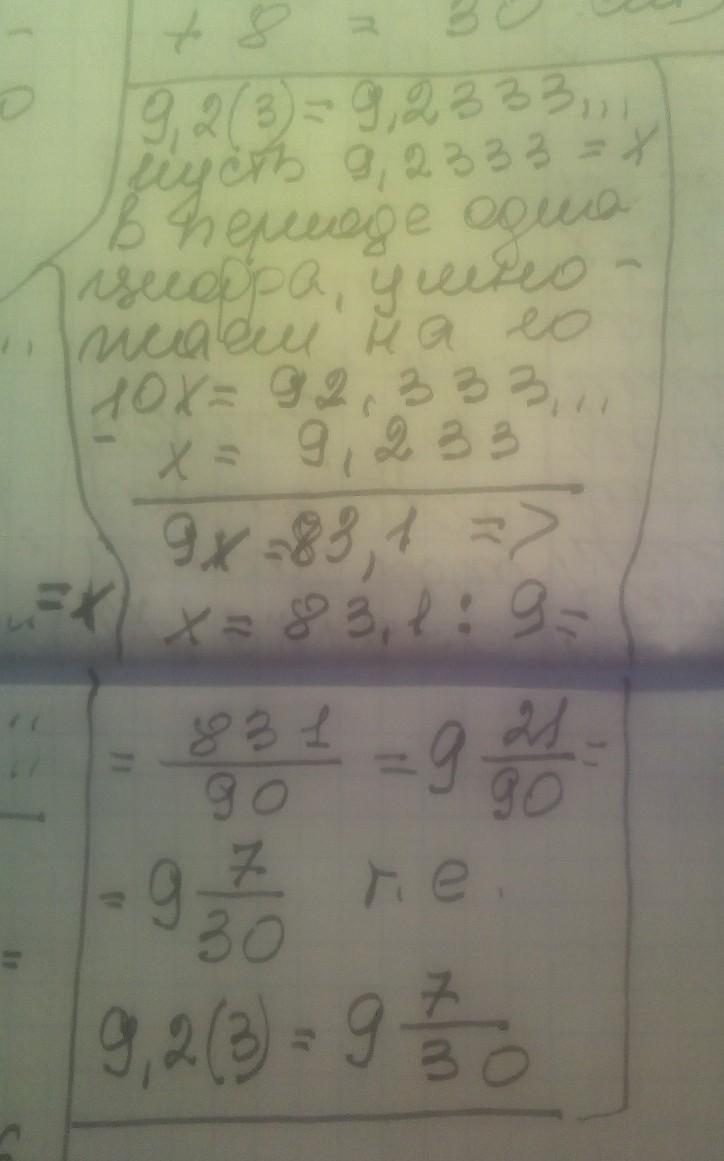 + 8 = 30
9,2(3) = 9,2333...
пусть 9,2333 = x
в периоде одна
цифра, умно-
жаем на 10
10x = 92,333...
- x = 9,233
9x = 83,1 =>
= x
x = 83,1 : 9 =
= 831/90 = 9 21/90 =
= 9 7/30 т.е.
9,2(3) = 9 7/30